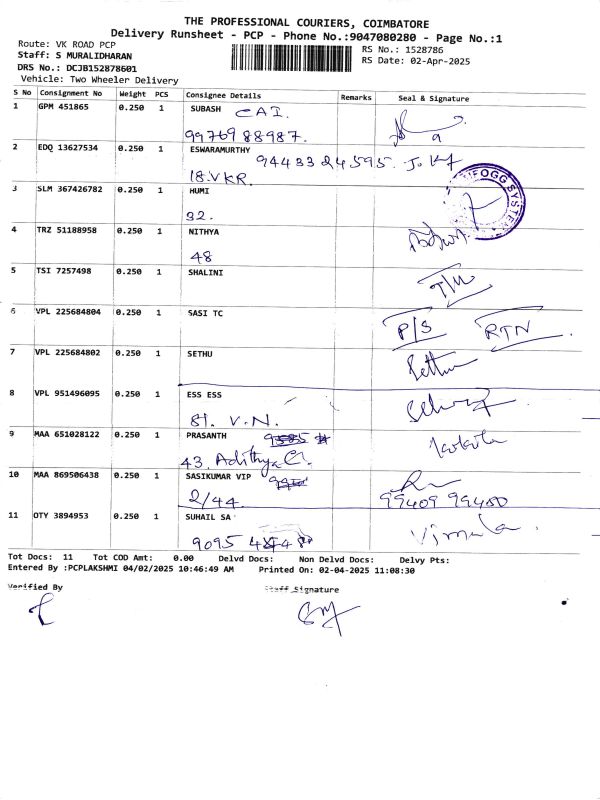 THE PROFESSIONAL COURIERS, COIMBATORE
Delivery Runsheet - PCP - Phone No.:9047080280 - Page No.:1
Route: VK ROAD PCP
Staff: S MURALIDHARAN
DRS No.: DCJB152878601
Vehicle: Two Wheeler Delivery
RS No.: 1528786
RS Date: 02-Apr-2025
S No Consignment No Weight PCS Consignee Details Remarks Seal & Signature
1 GPM 451865 0.250 1 SUBASH CAI.
9976988987.
2 EDQ 13627534 0.250 1 ESWARAMURTHY 9443324595.
18.VKR.
3 SLM 367426782 0.250 1 HUMI
92.
FOGG SYSTEM
4 TRZ 51188958 0.250 1 NITHYA
48
5 TSI 7257498 0.250 1 SHALINI
6 VPL 225684804 0.250 1 SASI TC
P/S RTN
7 VPL 225684802 0.250 1 SETHU
Sethu
8 VPL 951496095 0.250 1 ESS ESS
81. V.N.
9 MAA 651028122 0.250 1 PRASANTH
43. Adithya
10 MAA 869506438 0.250 1 SASIKUMAR VIP
2/44. 99409 99400
11 OTY 3894953 0.250 1 SUHAIL SA
9095 Vimala.
Tot Docs: 11 Tot COD Amt: 0.00 Delvd Docs: Non Delvd Docs: Delvy Pts:
Entered By :PCPLAKSHMI 04/02/2025 10:46:49 AM Printed On: 02-04-2025 11:08:30
Verified By Staff Signature